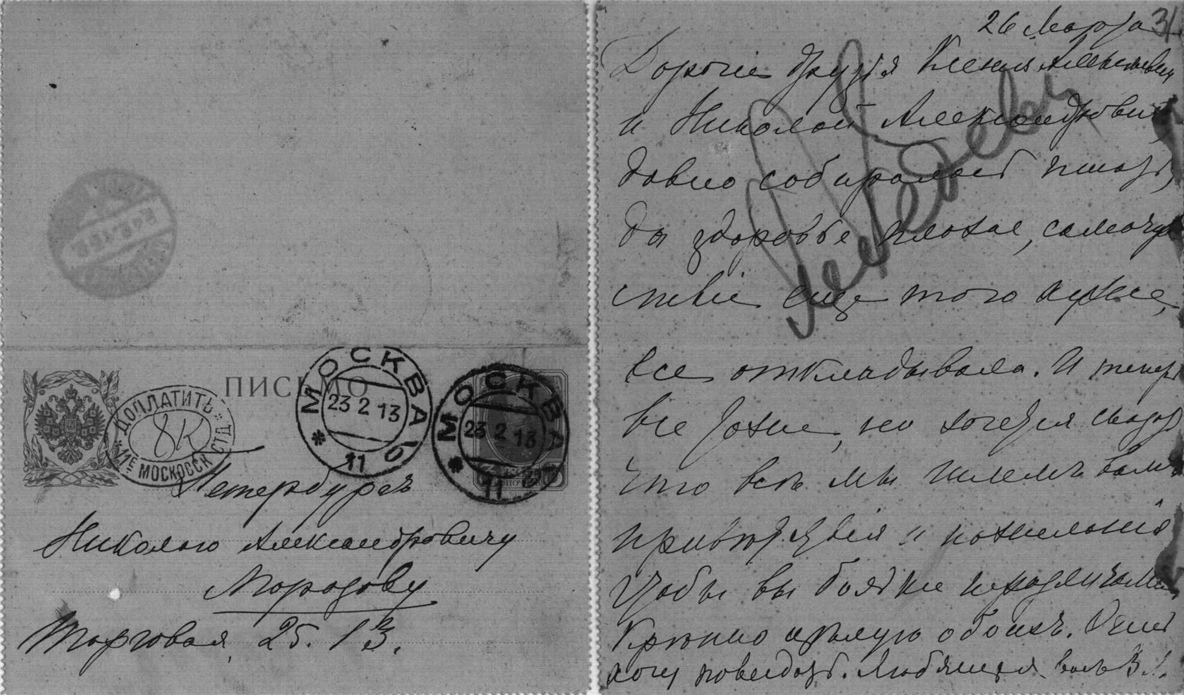 ПИСЬМО
ДОПЛАТИТЬ
8к
МОСКОВСК
МОСКВА
23 2 13
11
МОСКВА
23 2 13
11
Петербургъ
Николаю Александровичу
Морозову
Торговая, 25. 13.
26 Марта
Дорогіе друзья Ксенія Алексѣевна
и Николай Александровичъ
давно собиралась писать,
да здоровье плохое, самочув
ствіе еще того хуже,
все откладывала. И теперь
все тоже, но хочется сказать
что всѣ мы шлемъ вамъ
привѣтствія и пожеланія
Чтобы вы
Крѣпко цѣлую обоихъ. Очень
хочу повидать. Любящая васъ В.